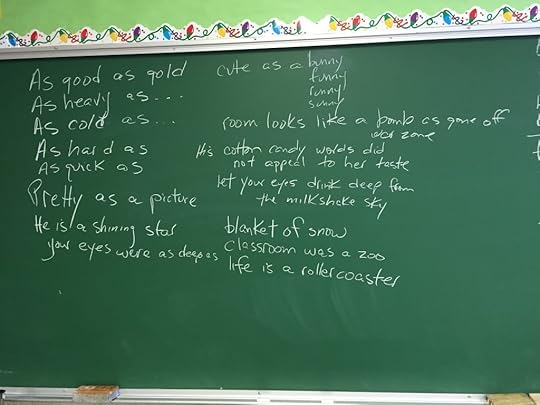 As good as gold
As heavy as...
As cold as...
As hard as
As quick as
Pretty as a picture
He is a shining star
your eyes were as deep as
cute as a bunny
funny
runny
sunny
room looks like a bomb as gone off
war zone
His cotton candy words did
not appeal to her taste
let your eyes drink deep from
the milkshake sky
blanket of snow
classroom was a zoo
life is a rollercoaster